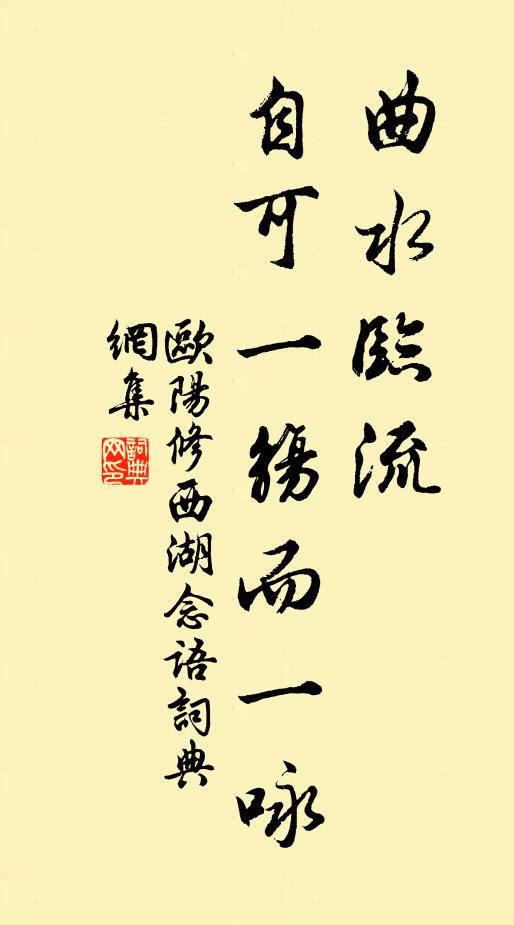 曲水臨流
自可一觴而一咏
歐陽修西湖念語詞典
網集
詞典
网印